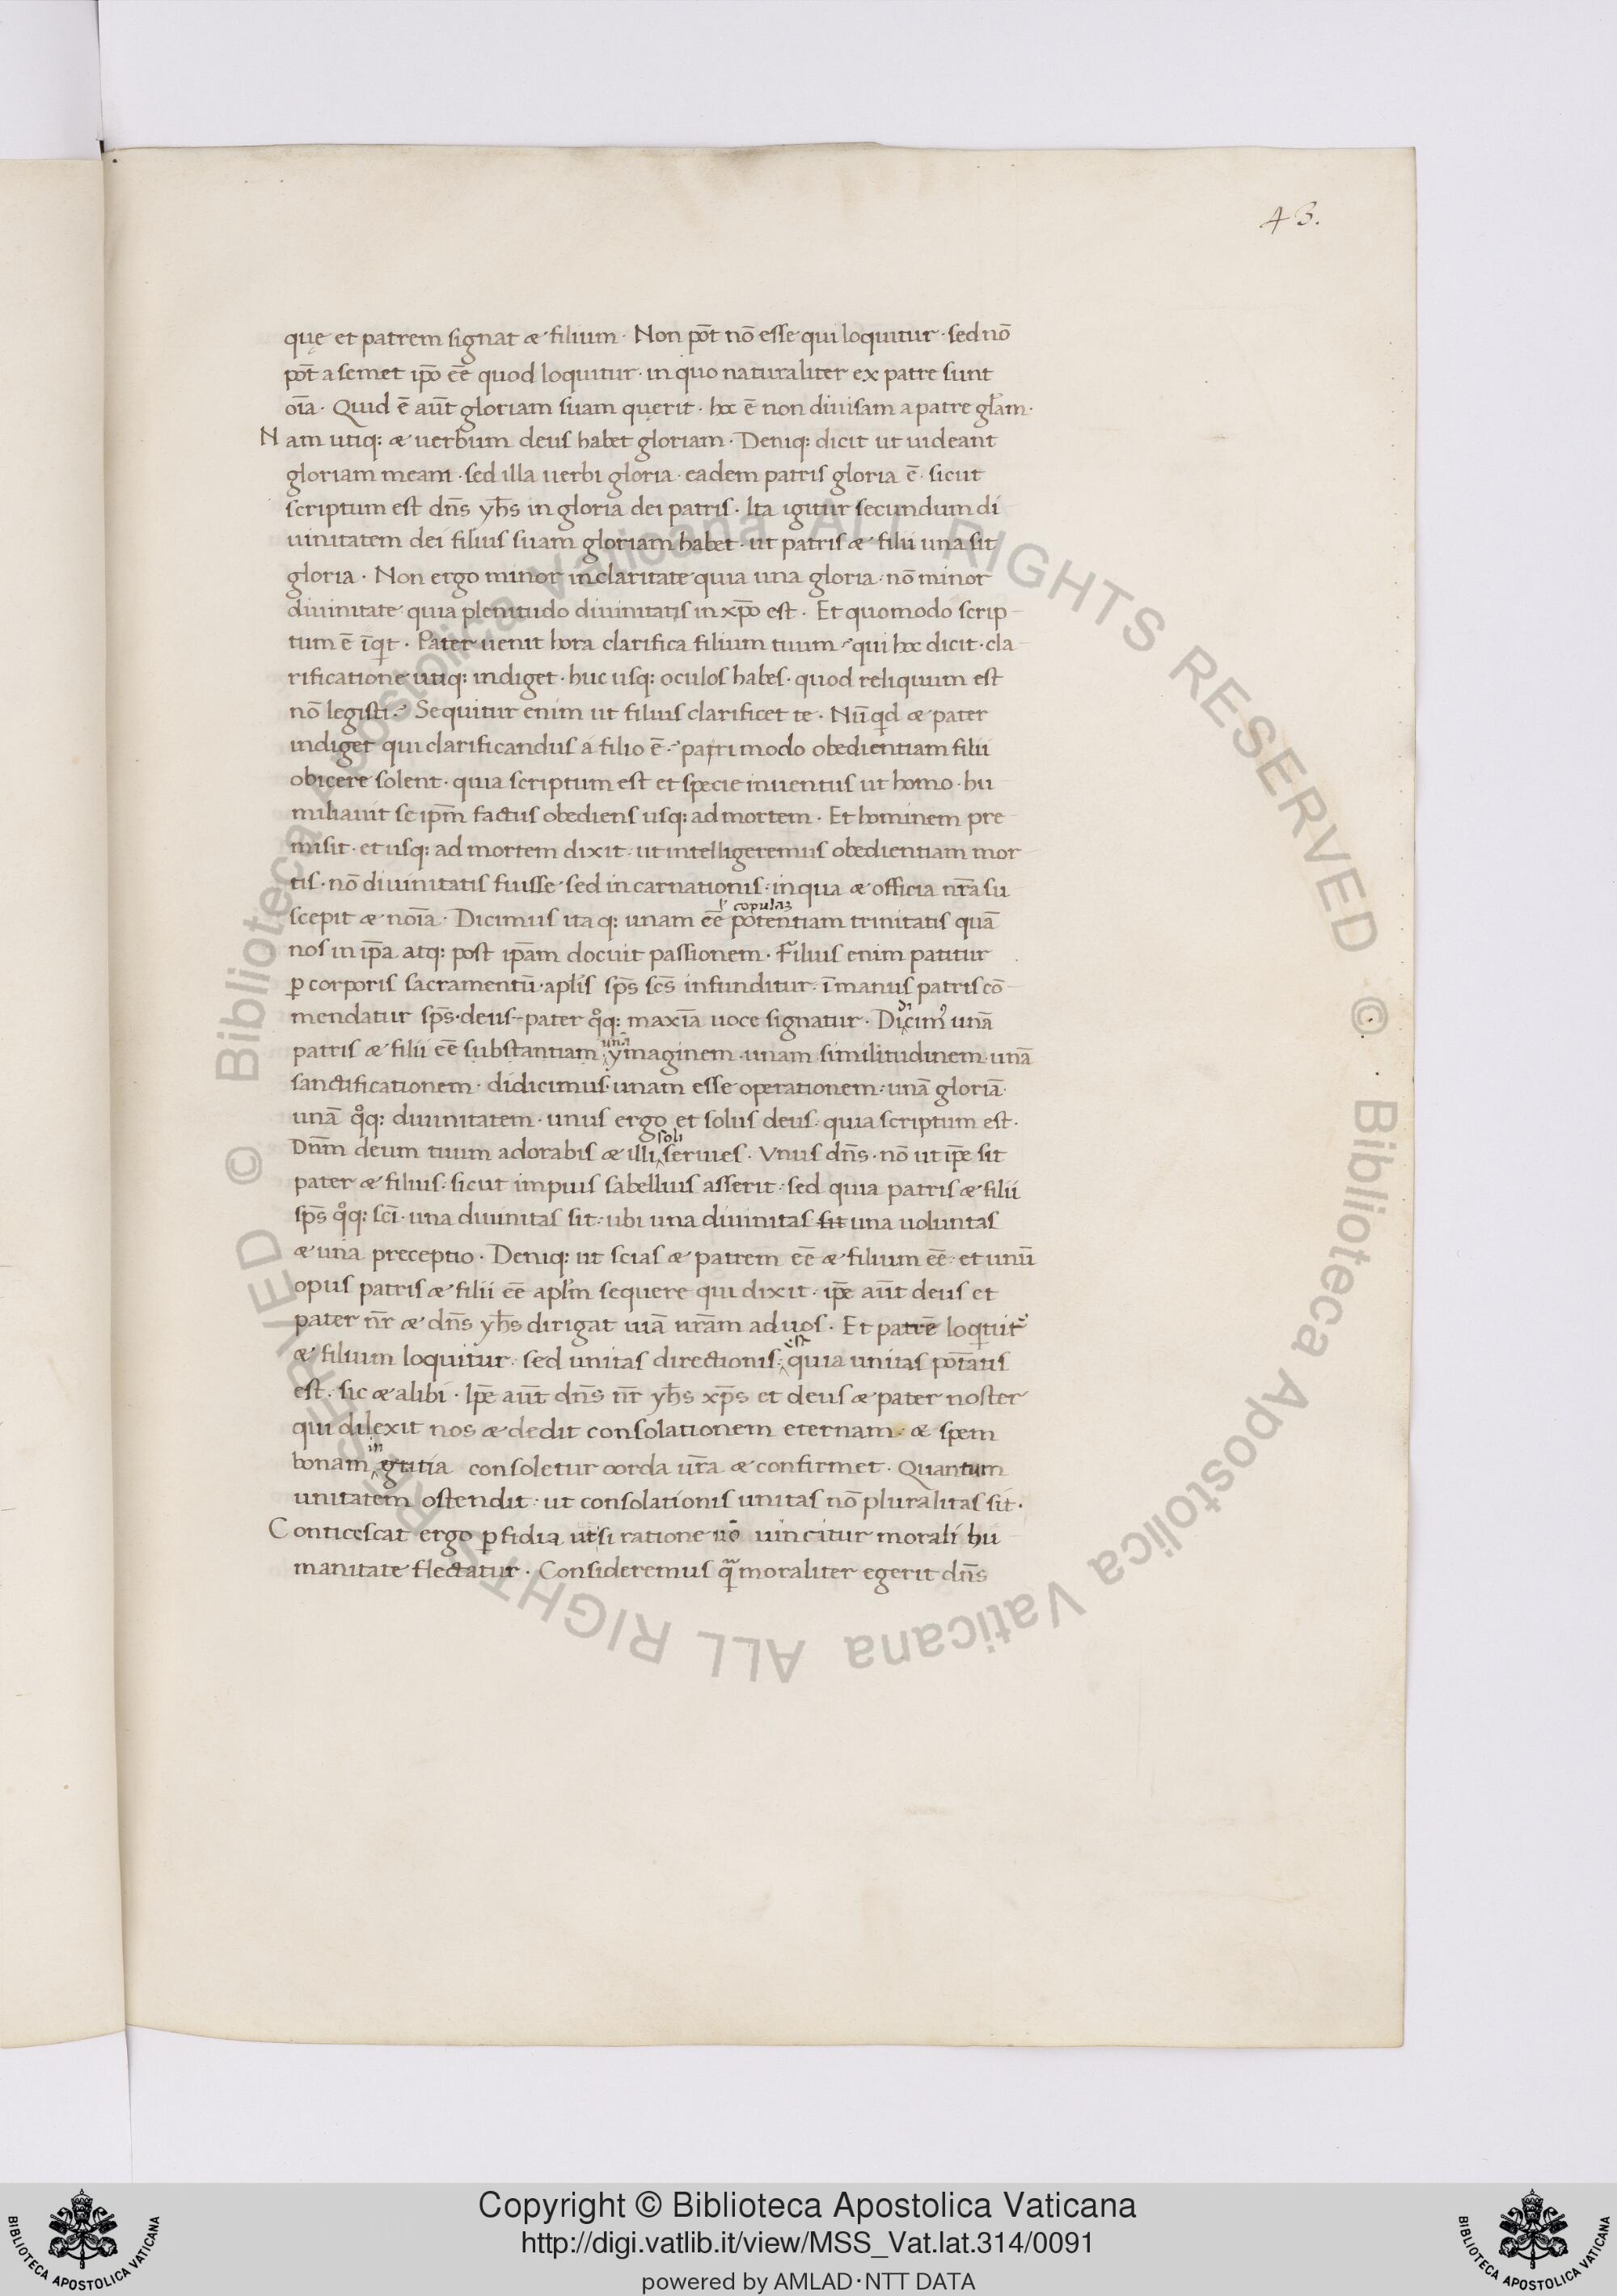 43.
quę et patrem signat & filium · Non pōt nō esse qui loquitur · sed nō
pōt a semet ip̄o ēe quod loquitur · in quo naturaliter ex patre sunt
oīa · Quid ē aūt gloriam suam querit · hoc ē non diuisam a patre gl̄am ·
Nam utiq: & uerbum deus habet gloriam · Deniq: dicit ut uideant
gloriam meam · sed illa uerbi gloria · eadem patris gloria ē · sicut
scriptum est dn̄s yh̄s in gloria dei patris · Ita igitur secundum di
uinitatem dei filius suam gloriam habet · ut patris & filii una sit
gloria · Non ergo minor in claritate quia una gloria · nō minor
diuinitate quia plenitudo diuinitatis in xp̄o est · Et quomodo scrip
tum ē īqt · Pater uenit hora clarifica filium tuum · qui hoc dicit · cla
rificatione utiq: indiget · huc usq: oculos habes · quod reliquum est
nō legisti · Sequitur enim ut filius clarificet te · Nūqd & pater
indiget qui clarificandus a filio ē · patri modo obedientiam filii
obicere solent · quia scriptum est et specie inuentus ut homo · hu
miliauit se ip̄m factus obediens usq: ad mortem · Et hominem pre
misit · et usq: ad mortem dixit · ut intelligeremus obedientiam mor
tis · nō diuinitatis fuisse sed incarnationis · in qua & officia nr̄a su
scepit & noīa · Dicimus itaq: unam ēe potentiam trinitatis quā
nos in ip̄a atq: post ip̄am docuit passionem · Filius enim patitur
p corporis sacramentū · apl̄is sp̄s sc̄s infunditur · ī manus patris cō
mendatur sp̄s · deus pater qq: maxīa uoce signatur · Didicim9 unā
patris & filii ēe substantiam unā ymaginem · unam similitudinem · unā
sanctificationem · didicimus unam esse operationem · unā gloriā ·
unā qq: diuinitatem · unus ergo et solus deus · quia scriptum est ·
Dn̄m deum tuum adorabis & illi soli seruies · Vnus dn̄s · nō ut ip̄e sit
pater & filius · sicut impius sabellius asserit · sed quia patris & filii
sp̄s qq: sc̄i · una diuinitas sit · ubi una diuinitas sit una uoluntas
& una preceptio · Deniq: ut scias & patrem ēe & filium ēe · et unū
opus patris & filii ēe apl̄m sequere qui dixit · ip̄e aūt deus et
pater nr̄ & dn̄s yh̄s dirigat uiā nr̄am ad uos · Et patrē loquit
& filium loquitur · sed unitas directionis est quia unitas potatis
est · sic & alibi · Ip̄e aūt dn̄s nr̄ yh̄s xp̄s et deus & pater noster
qui dilexit nos & dedit consolationem eternam · & spem
bonam in gtitia consoletur corda ur̄a & confirmet · Quantum
unitatem ostendit · ut consolationis unitas nō pluralitas sit ·
Conticescat ergo pfidia ut si ratione nō uincitur morali hu
manitate flectatur · Consideremus q̄ moraliter egerit dn̄s
Copyright © Biblioteca Apostolica Vaticana
http://digi.vatlib.it/view/MSS_Vat.lat.314/0091
powered by AMLAD·NTT DATA
BIBLIOTECA APOSTOLICA VATICANA
BIBLIOTECA APOSTOLICA VATICANA
© Biblioteca Apostolica Vaticana ALL RIGHTS RESERVED © Biblioteca Apostolica Vaticana ALL RIGHTS RESERVED